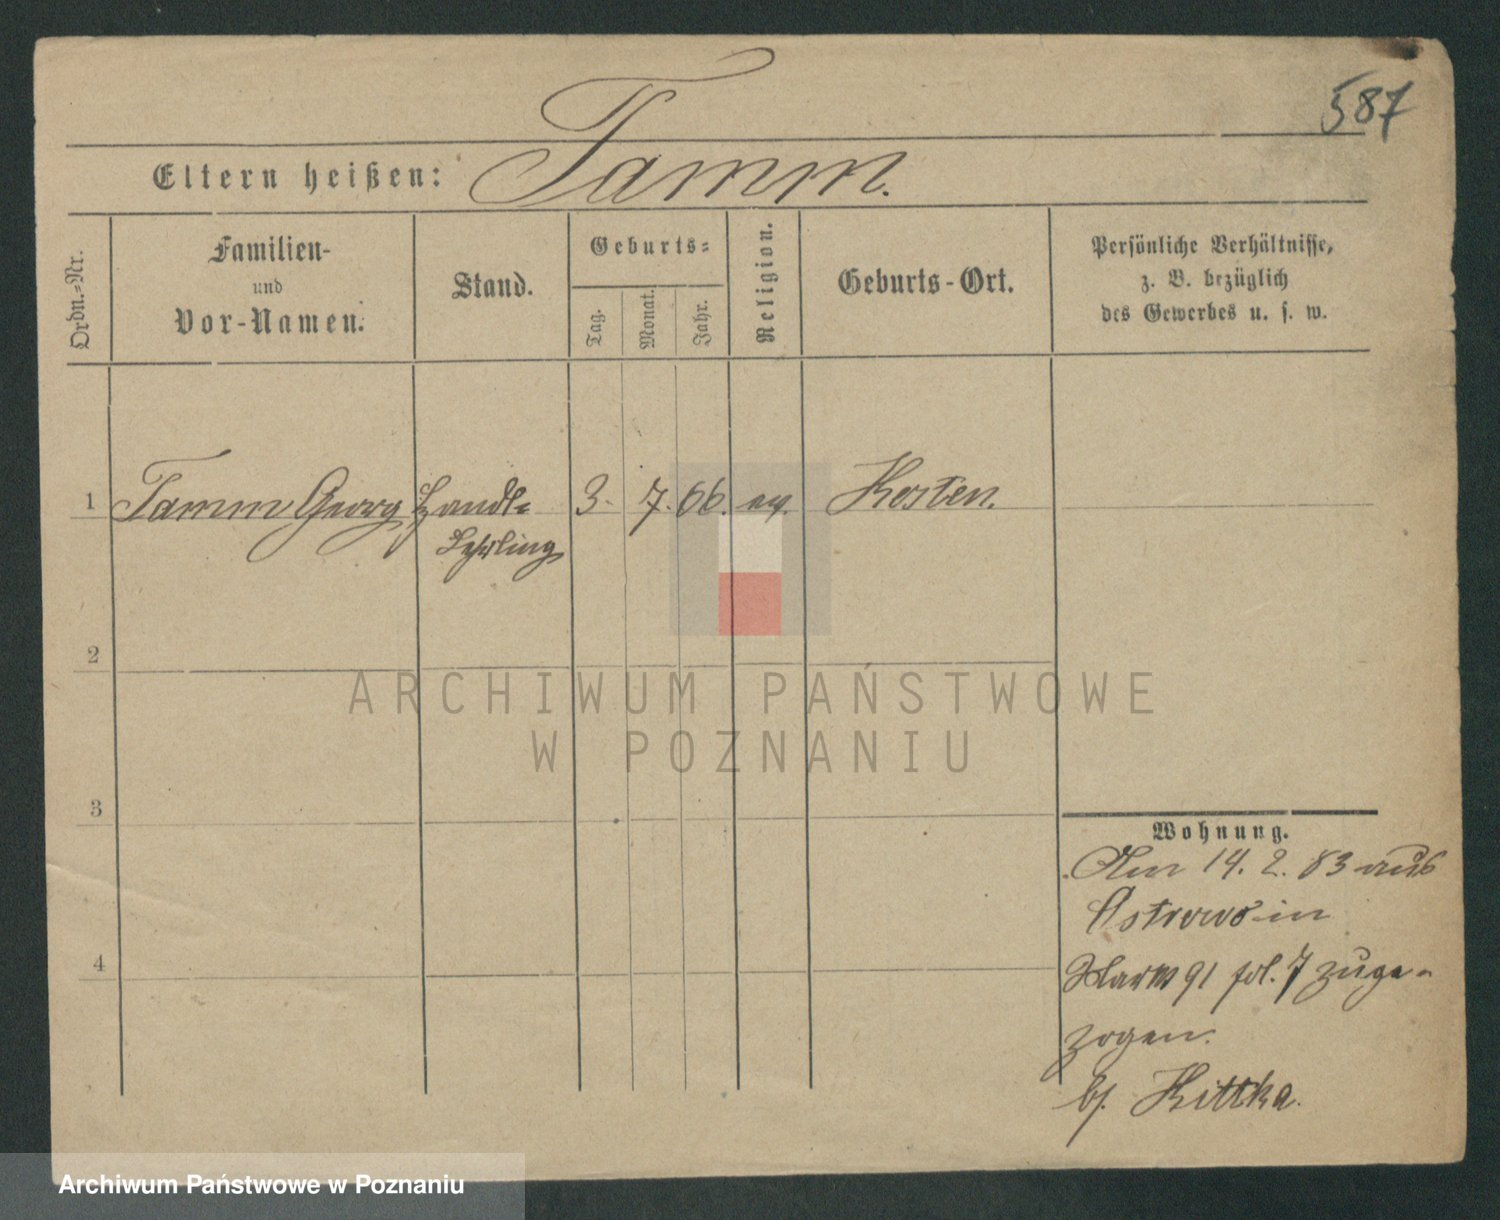 587
Eltern heißen: Tamm.
Ordn.-Nr.
Familien-
und
Vor-Namen.
Stand.
Geburts-
Tag.
Monat.
Jahr.
Religion.
Geburts-Ort.
Persönliche Verhältnisse,
z. B. bezüglich
des Gewerbes u. s. w.
1 Tamm Georg Handl- 3. 7. 66. ev. Kosten.
Lehrling
2
3
4
ARCHIWUM PAŃSTWOWE
W POZNANIU
Wohnung.
Am 14. 2. 83 aus
Ostrowo in
Markt 91 fol. 7 zuge-
zogen.
b/. Kittka.
Archiwum Państwowe w Poznaniu